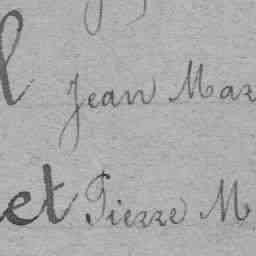 l Jean Mar
et Pierre M